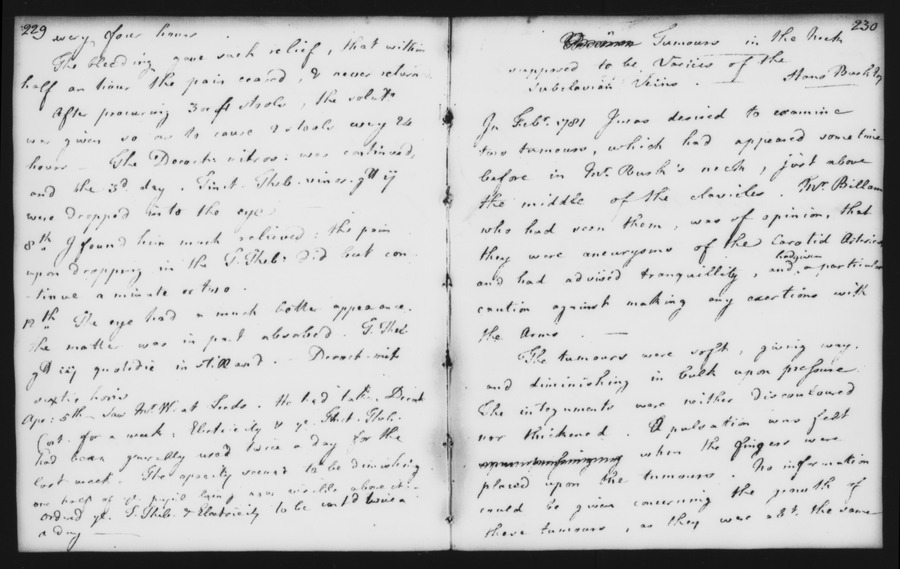 229
every four hours
The bleeding gave such relief, that within
half an hour the pain ceased, & never return
After procuring 3 or 4 stools, the salute
was given so as to cause 2 stools every 24
hours The Decoct: nitros: was continued,
and the 3d. day. Tinct. Theb. vinos. gtt ij
were dropped into the eye
8th I found him much relieved: the pain
upon dropping in the T. Theb: did but con
-tinue a minute or two.
12th The eye had a much better appearance.
The matter was in part absorbed. T. Theb
gtt iij quotidie instilland Decoct. nit
sextis horis
Apr: 5th Saw Mr. W. at Leeds. He had tak. Decoct
Cort. for a week: Electricity & ye. Tinct. Theb:
had been generally used twice a day for the
last week. The opacity seems to be diminishing
one half of ye. pupil being now visible above it.
ordered ye. T. Theb. & Electricity to be contd. twice
a day
230
Tumours in the Neck
supposed to be Varices of the
Subclavian Veins.
Hans Bush
In Feby. 1781 I was desired to examine
two tumours, which had appeared sometime
before in Mr. Bush's neck, just above
the middle of the clavicles. Mr. Billam
who had seen them, was of opinion, that
they were aneurysms of the Carotid Arteries
and had advised tranquillity, and had given a particular
caution against making any exertions with
the Arms.
The tumours were soft, giving way.
and diminishing in bulk upon pressure.
The integuments were neither discoloured
nor thickened. A pulsation was felt
when the fingers were
placed upon the tumours. No information
could be given concerning the growth of
these tumours, as they were abt. the same